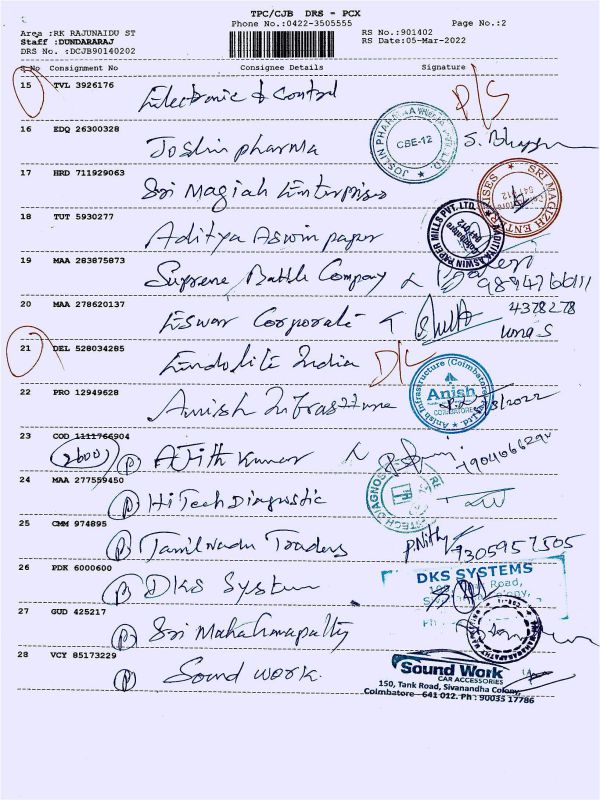 TPC/CJB DRS - PCX
Phone No.:0422-3505555
Page No.:2
Area :RK RAJUNAIDU ST
Staff :DUNDARARAJ
DRS No. :DCJB90140202
RS No.:901402
RS Date:05-Mar-2022
S No Consignment No Consignee Details Signature
15 TVL 3926176 Electronic & Control D/S
16 EDQ 26300328 Joslin pharma
CBE-12
17 HRD 711929063 Sri Magiah Enterprises
18 TUT 5930277 Aditya Aswin paper
19 MAA 283875873 Supreme Battle Company
20 MAA 278620137 Eswar Corporate 4378278
uma S
21 DEL 528034285 Endolite India D/L
22 PRO 12949628 Anish
Anish
COIMBATORE
23 COD 1111766904 (2600) (P) Ajith Kumar
24 MAA 277559450 (P) HiTech Diagnostic
25 CMM 974895 (P) Tamilnadu Traders P.Nithy 9305957505
26 PDK 6000600 (P) DKS System
DKS SYSTEMS
Road,
27 GUD 425217 (P) Sri
28 VCY 85173229 (P) Sound work.
Sound Work
CAR ACCESSORIES
150, Tank Road, Sivanandha Colony,
Coimbatore - 641 012. Ph : 90035 17786